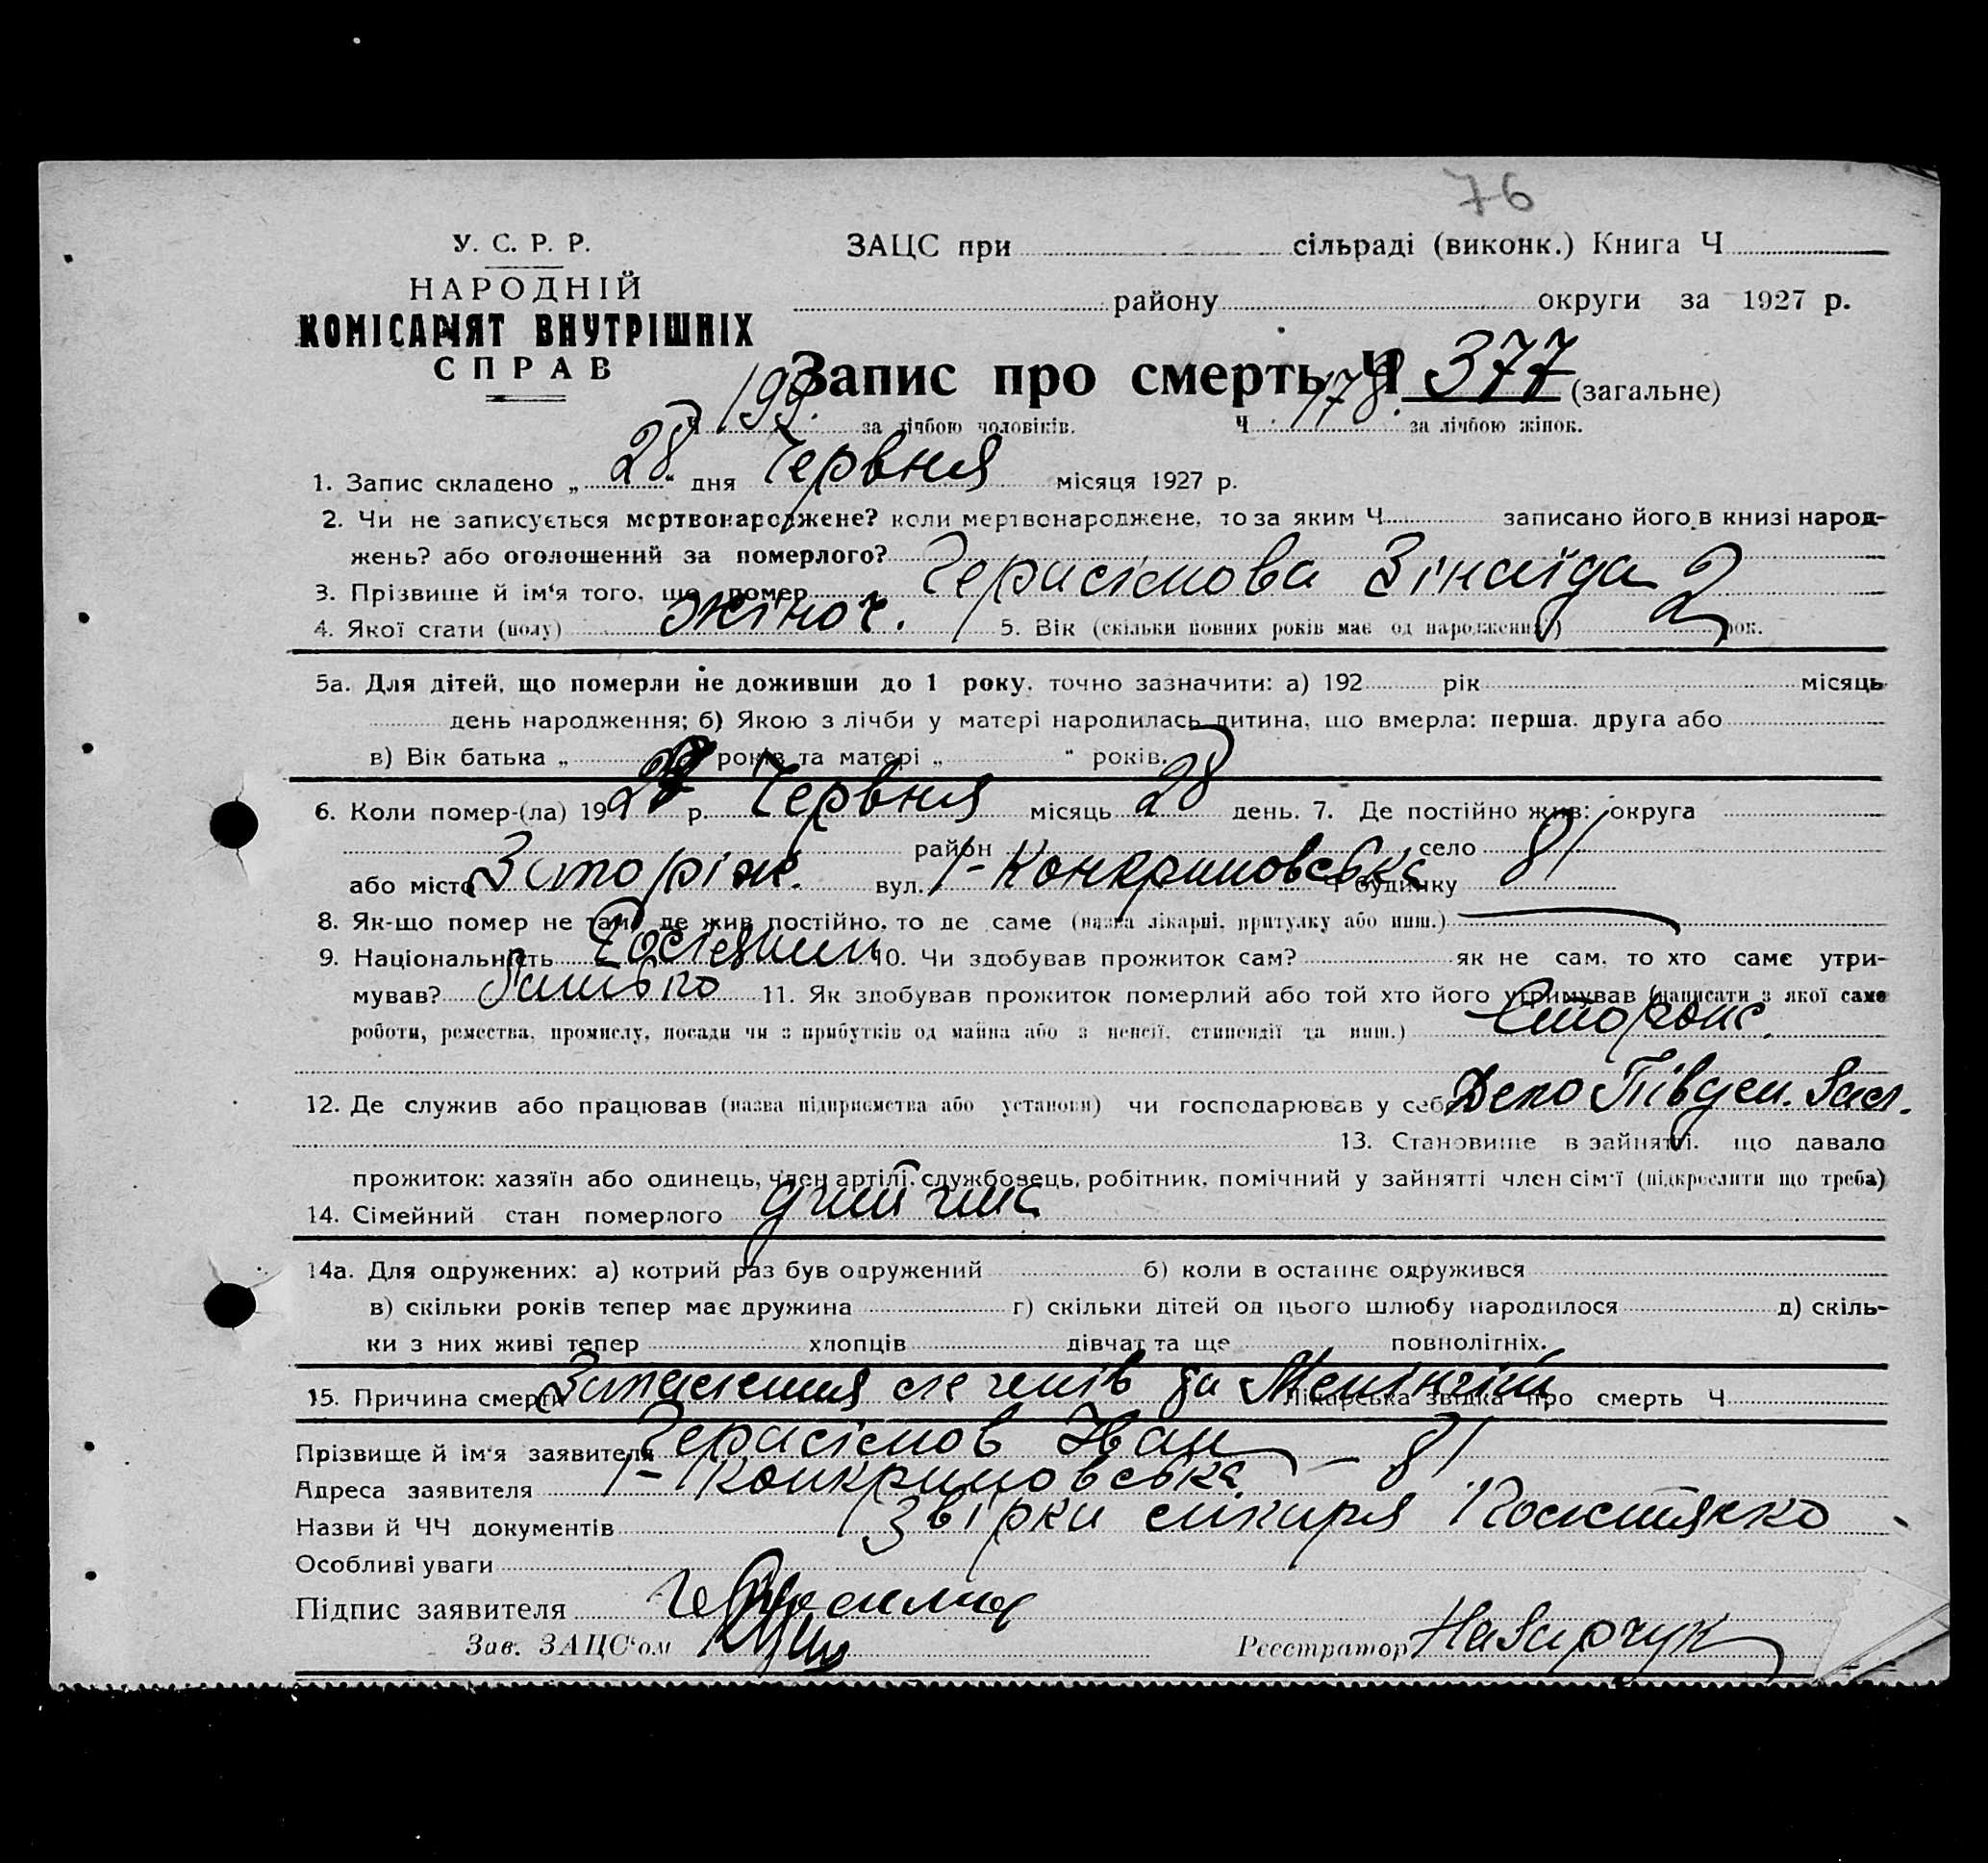 76
У. С. Р. Р.
НАРОДНІЙ
КОМІСАРІЯТ ВНУТРІШНІХ
СПРАВ
ЗАЦС при сільраді (виконк.) Книга Ч
району округи за 1927 р.
Запис про смерть Ч 377 (загальне)
Ч 199. за лічбою чоловіків. Ч 178. за лічбою жінок.
1. Запис складено „28“ дня Червня місяця 1927 р.
2. Чи не записується мертвонароджене? коли мертвонароджене, то за яким Ч записано його в книзі народ-
жень? або оголошений за померлого?
3. Прізвище й ім‘я того, що помер Герасімова Зінаїда
4. Якої стати (полу) жіноч. 5. Вік (скільки повних років має од народження) 2 рок.
5а. Для дітей, що померли не доживши до 1 року, точно зазначити: а) 192 рік місяць
день народження; б) Якою з лічби у матері народилась дитина, що вмерла: перша, друга або
в) Вік батька „ років та матері „ “ років.
6. Коли помер-(ла) 1927 р. Червня місяць 28 день. 7. Де постійно жив: округа
район село
або місто Запоріж. вул. 1-Конкриновська Ч будинку 81
8. Як-що помер не там, де жив постійно, то де саме (назва лікарні, притулку або инш.)
9. Національність 10. Чи здобував прожиток сам? як не сам, то хто саме утри-
мував? Батько 11. Як здобував прожиток померлий або той хто його утримував (написати з якої саме
роботи, ремества, промислу, посади чи з прибутків од майна або з пенсії, стипендії та инш.) Сторож.
12. Де служив або працював (назва підприємства або установи) чи господарював у себе Депо Півден.
13. Становище в зайнятті, що давало
прожиток: хазяїн або одинець, член артілі, службовець, робітник, помічний у зайнятті член сім‘ї (підкреслити що треба)
14. Сімейний стан померлого дитина
14а. Для одружених: а) котрий раз був одружений б) коли в останнє одружився
в) скільки років тепер має дружина г) скільки дітей од цього шлюбу народилося д) скіль-
ки з них живі тепер хлопців дівчат та ще повнолітніх.
15. Причина смерти Запалення легенів та Менінгіт Лікарська звідка про смерть Ч
Прізвище й ім‘я заявителя Герасімов Іван
Адреса заявителя 1-Конкриновська – 81
Назви й ЧЧ документів лікаря
Особливі уваги
Підпис заявителя Герасимов
Зав. ЗАЦС‘ом
Реєстратор Назарчук